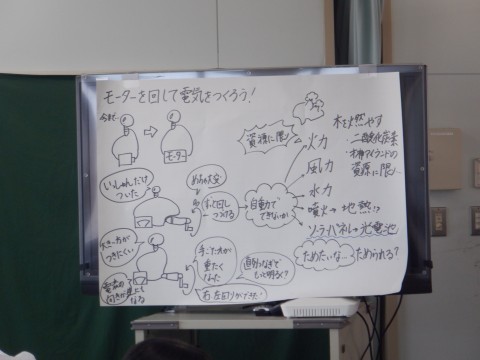 モーターを回して電気をつくろう!
今まで
モーター
いっしゅんだけ
ついた
めちゃ大変
ずっと回し
つづける
自動で
できないか
資源に限り
火力
風力
水力
噴火→地熱!?
ソーラーパネル→光電池
木を燃やす
・二酸化炭素
資源に限り
ためたいな…ためられる?
大きい方が
つきにくい
手ごたえが
重たく
なった
直列つなぎで
もっと明るく?
電流の
向きが逆にも
なる